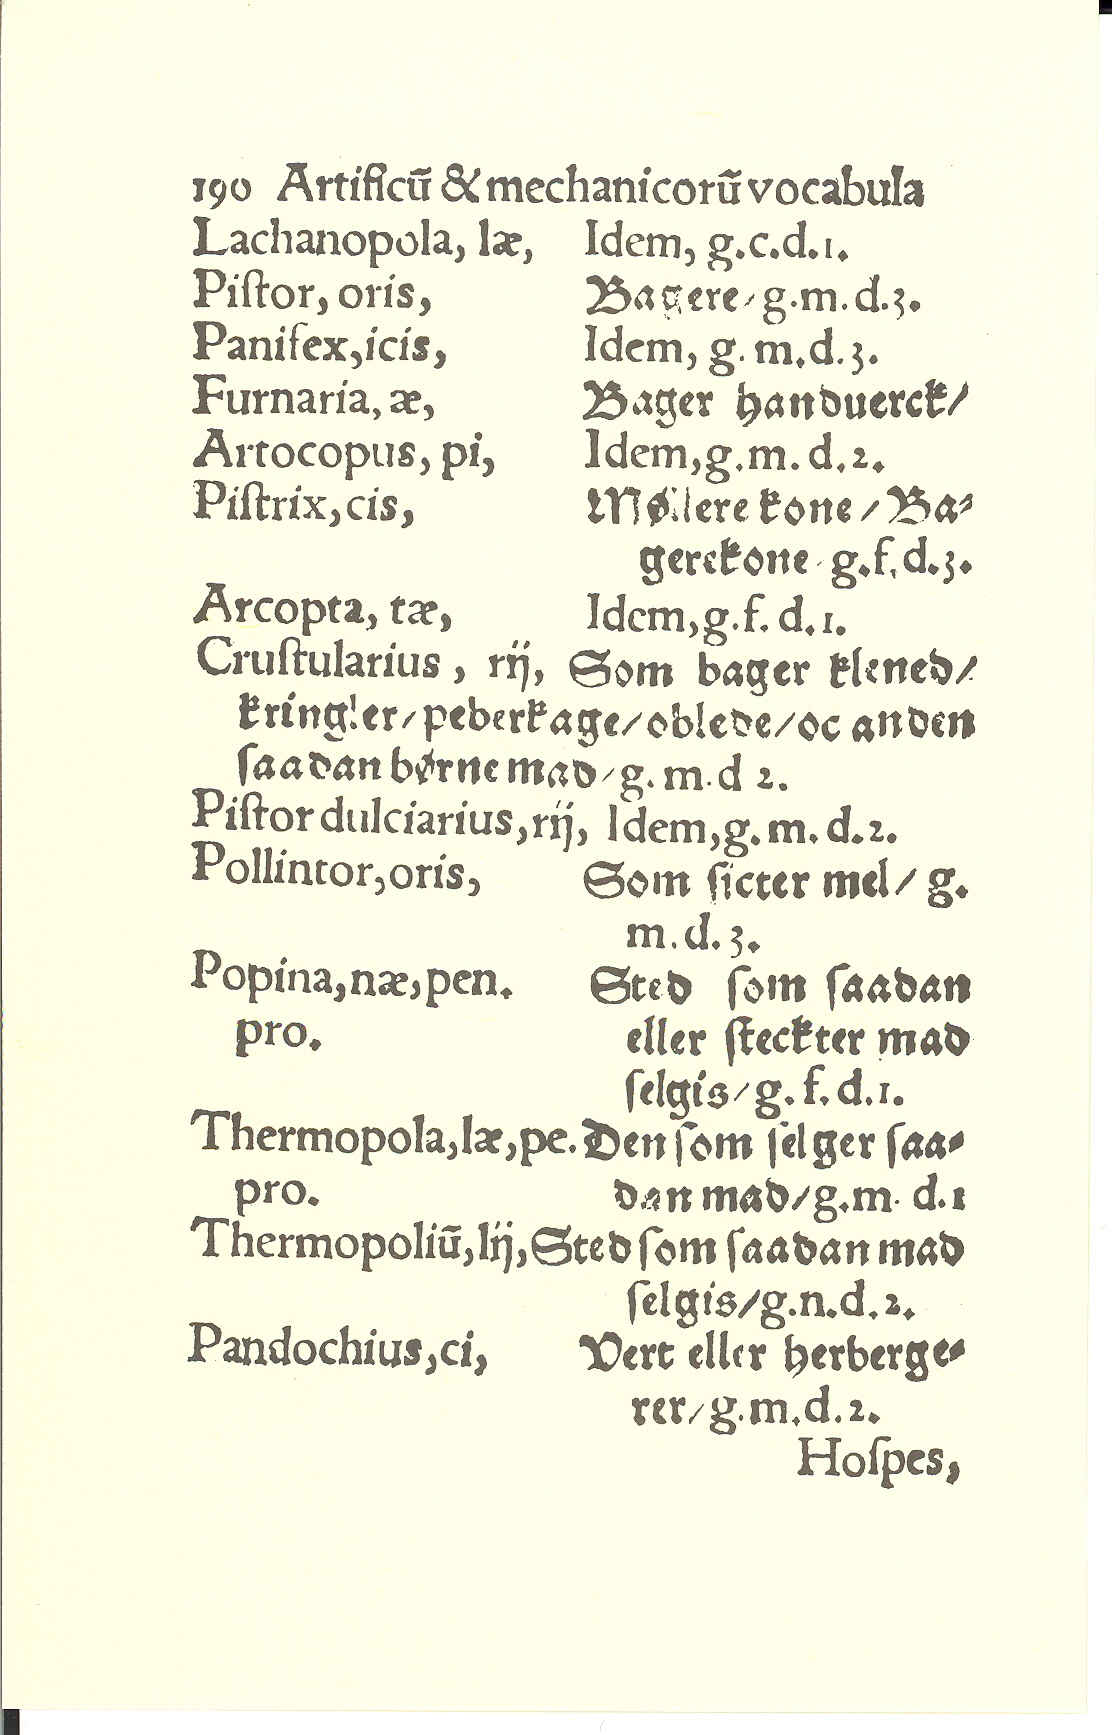 190 Artificũ & mechanicorũ vocabula
Lachanopola, læ, Idem, g.c.d.1.
Piſtor, oris, Bagere/ g.m.d.3.
Panifex,icis, Idem, g. m.d.3.
Furnaria, æ, Bager handuerck/
Artocopus, pi, Idem,g.m.d.2.
Piſtrix,cis, Møllere kone/ Ba⸗
gerckone g.f.d.3.
Arcopta, tæ, Idem,g.f.d.1.
Cruſtularius, rĳ, Som bager klened/
kringler/peberkage/oblede/oc anden
ſaadan børne mad/g.m.d 2.
Piſtor dulciarius,rĳ, Idem,g.m.d.2.
Pollintor,oris, Som ſicter mel/ g.
m.d.3.
Popina,næ,pen. Sted ſom ſaadan
pro. eller ſteckter mad
ſelgis/g.f.d.1.
Thermopola,læ,pe. Den ſom ſelger ſaa⸗
pro. dan mad/g.m. d.1
Thermopoliũ,lĳ, Sted ſom ſaadan mad
ſelgis/g.n.d.2.
Pandochius,ci, Vert eller herberge⸗
rer/g.m.d.2.
Hoſpes,